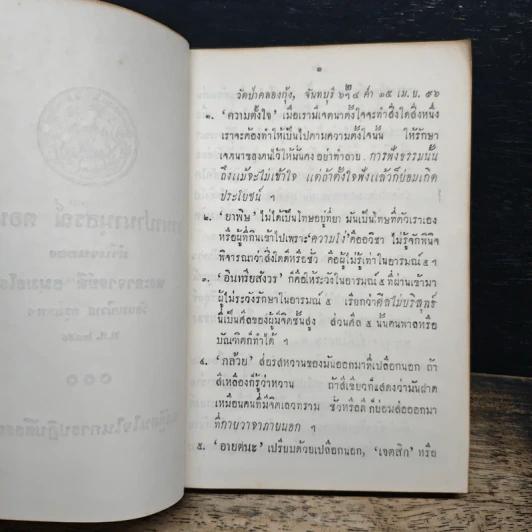 ๑
วัดป่าคลองกุ้ง, จันทบุรี ๑๕ เม.ย. ๙๖
๑. ‘ความตั้งใจ’ เมื่อเรามีเจตนาตั้งใจจะทำสิ่งใดสิ่งหนึ่ง
เราจะต้องทำให้เป็นไปตามความตั้งใจนั้น ให้รักษา
เจตนาของตนไว้ให้มั่นคง อย่าทำลาย การฟังธรรมนั้น
ถึงแม้จะไม่เข้าใจ แต่ถ้าตั้งใจฟังแล้วก็ย่อมเกิด
ประโยชน์ ฯ
๒. ‘ยาพิษ’ ไม่ได้เป็นโทษอยู่ที่ยา มันเป็นโทษที่ตัวเราเอง
หรือผู้ที่กินเข้าไปเพราะ‘ความโง่’คืออวิชา ไม่รู้จักพินิจ
พิจารณาว่าสิ่งใดดีหรือชั่ว คือผู้ไม่รู้เท่าในอารมณ์ ๕ ฯ
๓. ‘อินทรียสังวร’ ก็คือให้ระวังในอารมณ์ ๕ ที่ผ่านเข้ามา
ผู้ไม่ระวังรักษาในอารมณ์ ๕ เรียกว่าศีลไม่บริสุทธิ์
นี้เป็นศีลของผู้มีจิตชั้นสูง ส่วนศีล ๕ นั้นคนพาลหรือ
บัณฑิตก็ทำได้ ฯ
๔. ‘กล้วย’ ส่อรสหวานของมันออกมาที่เปลือกนอก ถ้า
สีเหลืองก็รู้ว่าหวาน ถ้าสีเขียวก็แสดงว่ามันฝาด
เหมือนคนที่มีจิตเลวทราม ชั่วหรือดีก็ย่อมส่อออกมา
ที่กายวาจาภายนอก ฯ
๕. ‘อายตนะ’ เปรียบด้วยเปลือกนอก, ‘เจตสิก’ หรือ